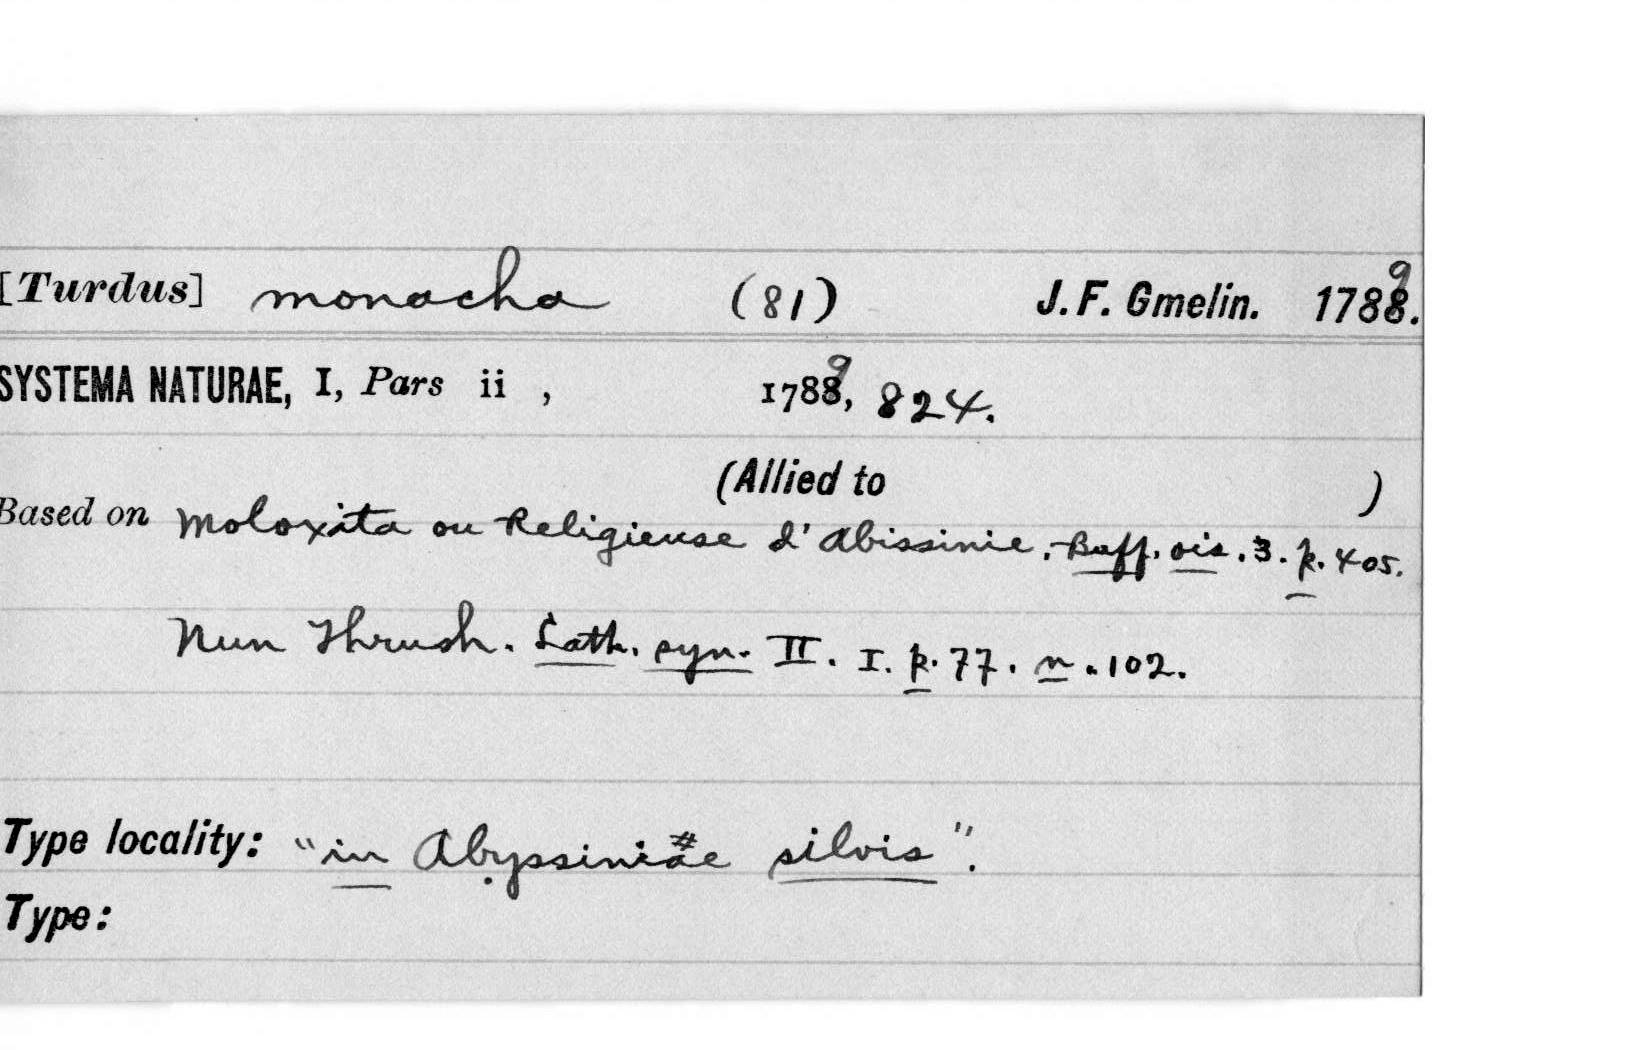 [Turdus] monacha (81) J. F. Gmelin. 1789.
SYSTEMA NATURAE, I, Pars ii , 1789, 824.
(Allied to )
Based on Moloxita ou Religieuse d'Abissinie. Buff. ois. 3. p. 405.
Nun Thrush. Lath. syn. II. I. p. 77. n. 102.
Type locality: "in Abyssiniae silvis".
Type: